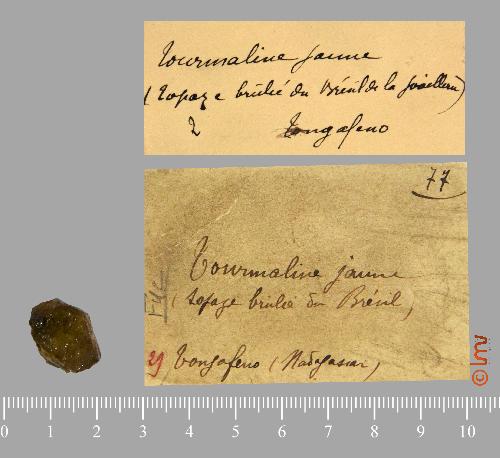 Tourmaline jaune
(topaze brûlée du Brésil de la joaillerie)
2 Tongafeno
77
Tourmaline jaune
(topaze brulée du Brésil,
29 Tongafeno (Madagascar)
0 1 2 3 4 5 6 7 8 9 10